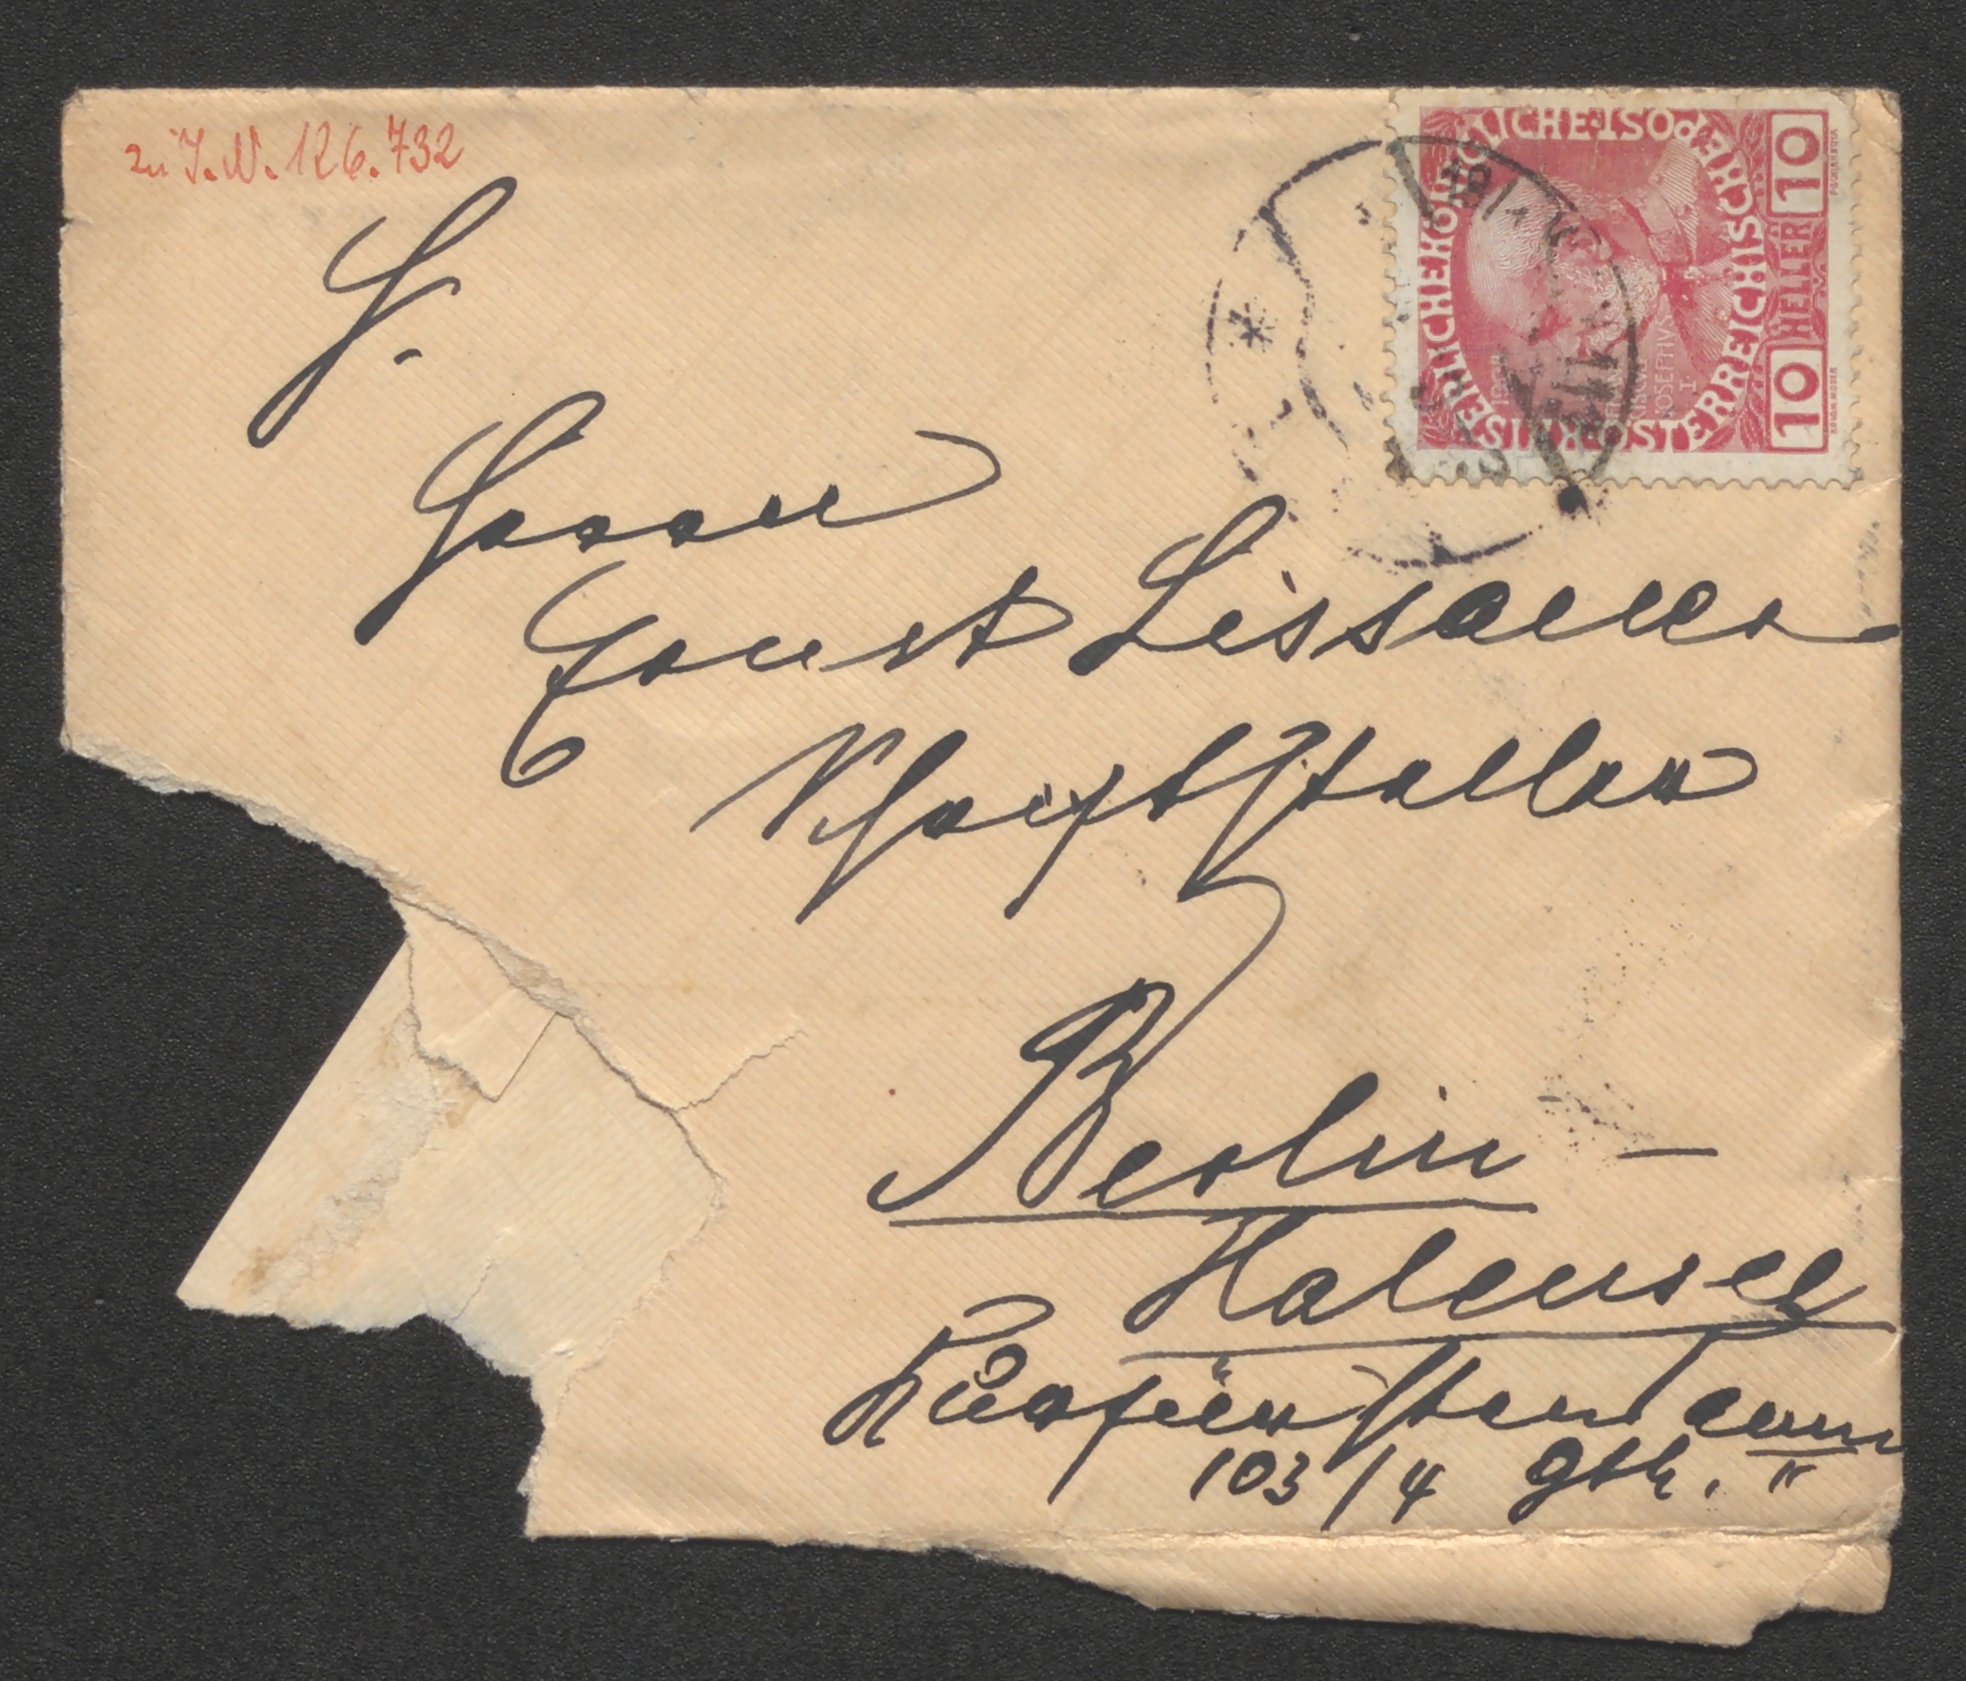 zu I.N. 126.732
H.
Herrn
Ernst Lissauer
Schriftsteller
Berlin -
Halensee
Kurfürstendamm
103/4 Gth. II
KAISERLICHE KÖNIGLICHE ÖSTERREICHISCHE POST
10 HELLER 10